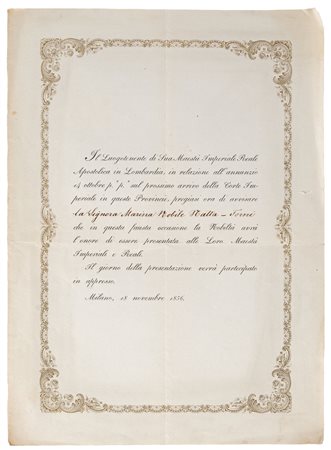 Il Luogotenente di Sua Maestà Imperiale Reale
Apostolica in Lombardia, in relazione all'annunzio
14 ottobre p.° p.° sul prossimo arrivo della Corte Im-
periale in queste Provincie, pregiasi ora di avvisare
la Signora Marina Nobile
che in questa fausta occasione la Nobiltà avrà
l'onore di essere presentata alle Loro Maestà
Imperiali e Reali.
Il giorno della presentazione verrà partecipato
in appresso.
Milano, 18 novembre 1856.